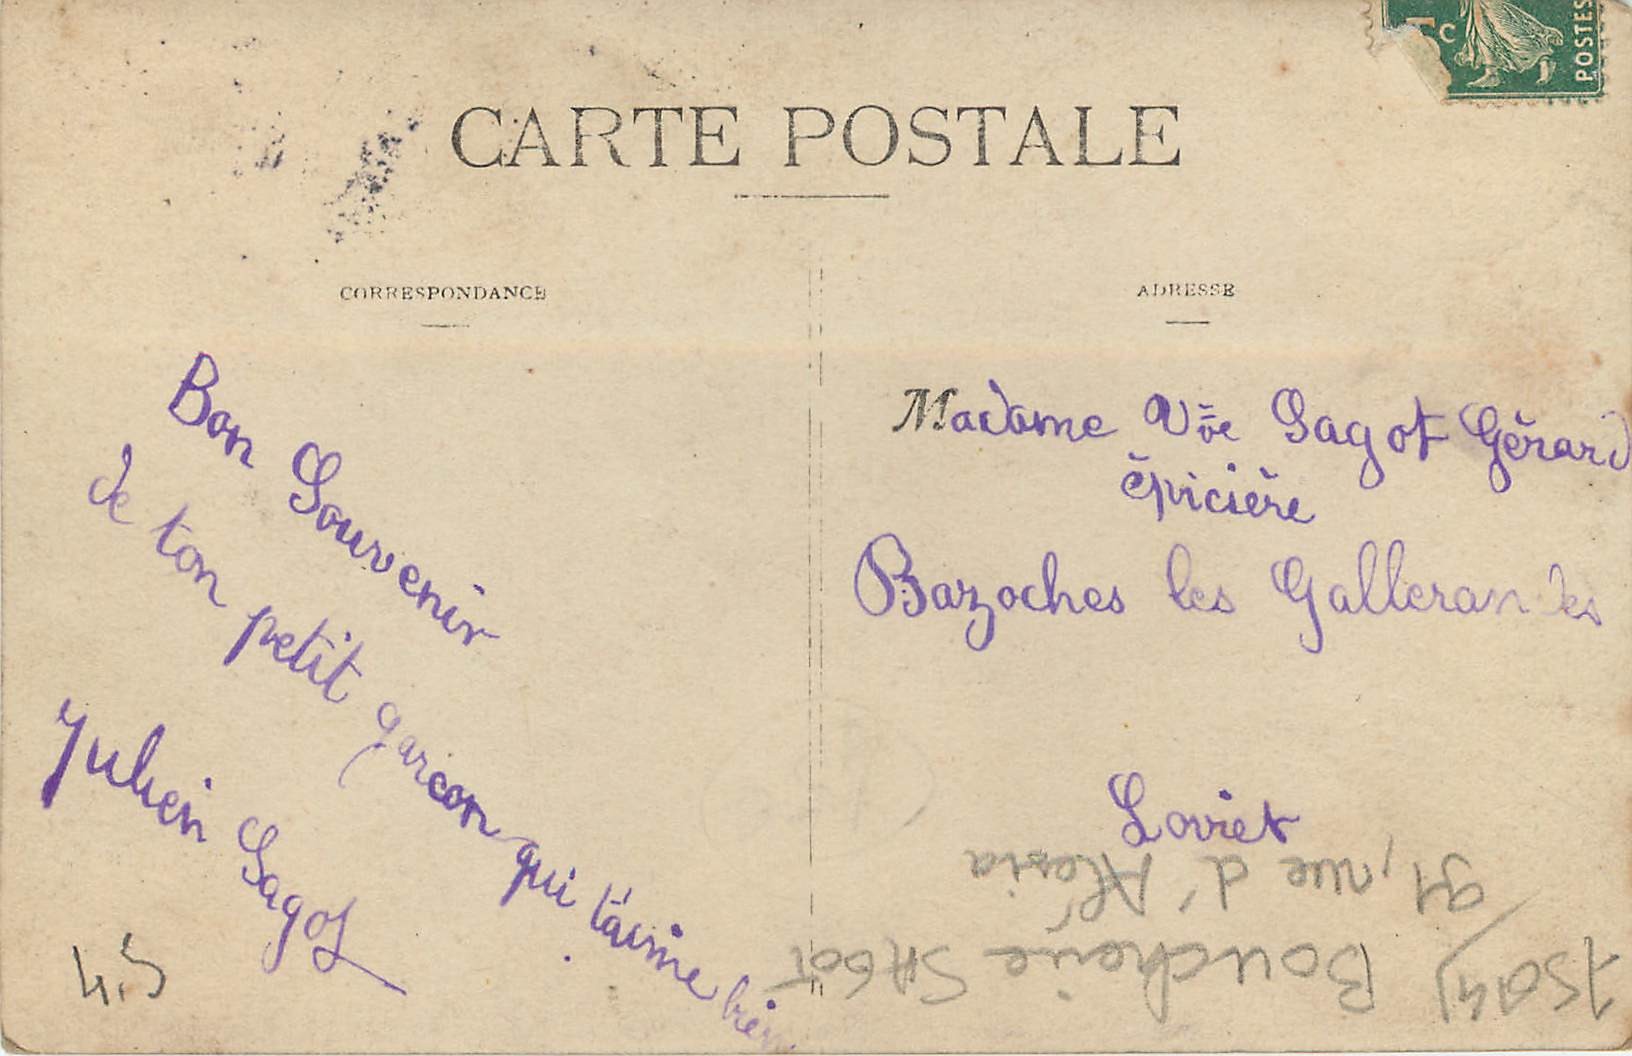 5c
POSTES
CARTE POSTALE
CORRESPONDANCE
ADRESSE
Bon Souvenir
de ton petit garçon qui t'aime bien
Julien Sagot
4.5
Madame Vve Sagot Gérard
épicière
Bazoches les Gallerandes
Loiret
75014 Boucherie SAGOT
91, rue d'Alésia